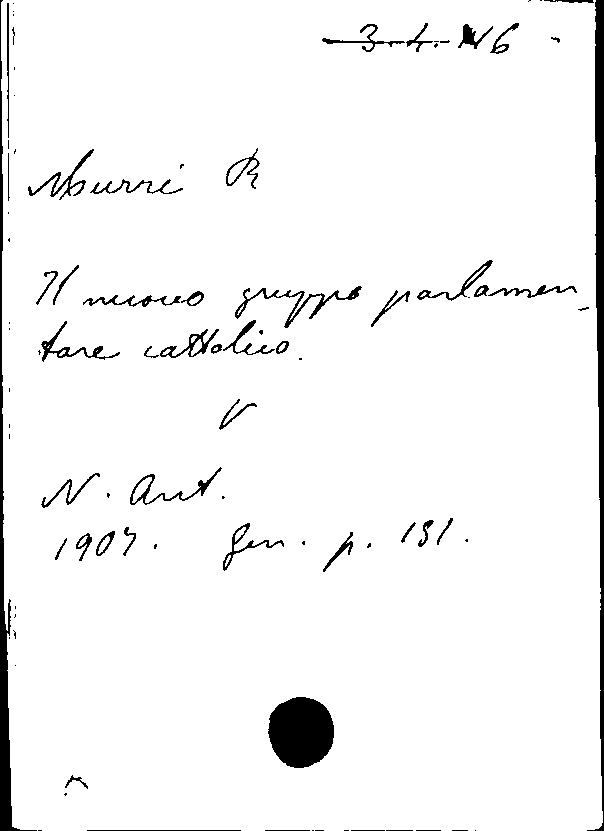 3.4. N6
Murri R
Il nuovo gruppo parlamen-
tare cattolico.
V
N. Ant.
1907. Gen. p. 131.